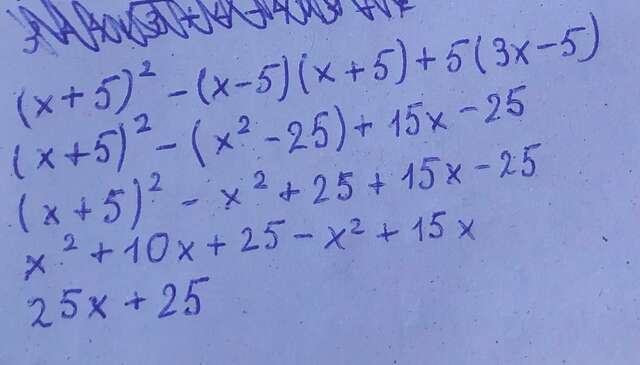 (x+5)² - (x-5)(x+5) + 5(3x-5)
(x+5)² - (x² - 25) + 15x - 25
(x+5)² - x² + 25 + 15x - 25
x² + 10x + 25 - x² + 15x
25x + 25